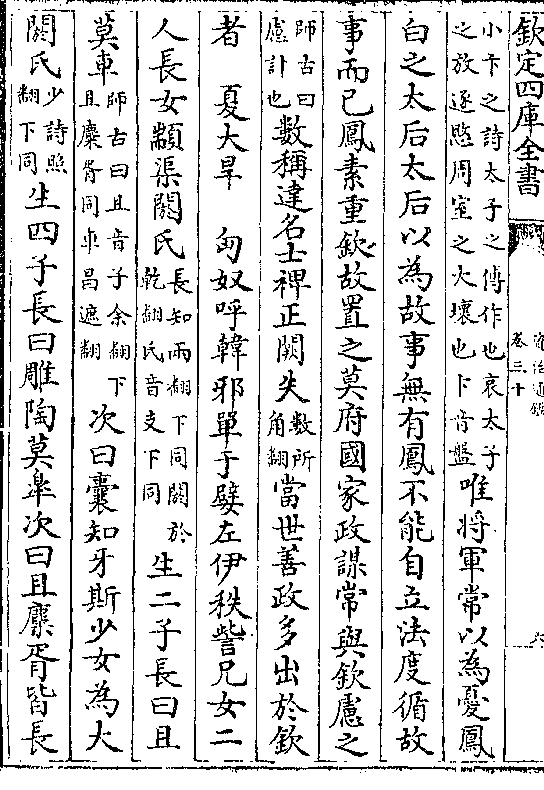 欽定四庫全書
資治通鑑
卷三十
六
小卞之詩太子之傅作也哀太子
之放逐愍周室之大壞也卞音盤
唯將軍常以為憂鳳
白之太后太后以為故事無有鳳不能自立法度循故
事而已鳳素重欽故置之莫府國家政謀常與欽慮之
師古曰
慮計也
數稱達名士裨正闕失
數所
角翻
當世善政多出於欽
者　夏大旱　匈奴呼韓邪單于嬖左伊秩訾兄女二
人長女顓渠閼氏
長知兩翻下同閼於
乾翻氏音支下同
生二子長曰且
莫車
師古曰且音子余翻下
且麋胥同車昌遮翻
次曰囊知牙斯少女為大
閼氏
少詩照
翻下同
生四子長曰雕陶莫皋次曰且麋胥皆長